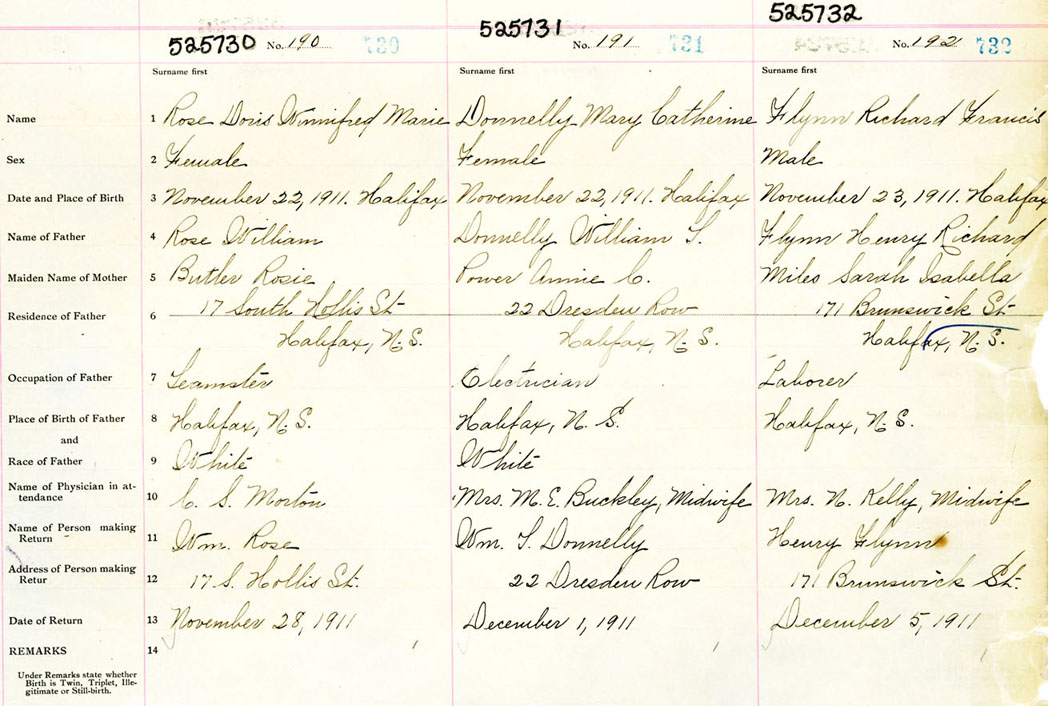 525730 No. 190 730 525731 No. 191 731 525732 No. 192 732
Surname first Surname first Surname first
Name 1 Rose Doris Winnifred Marie Donnelly Mary Catherine Flynn Richard Francis
Sex 2 Female Female Male
Date and Place of Birth 3 November 22, 1911. Halifax November 22, 1911. Halifax November 23, 1911. Halifax
Name of Father 4 Rose William Donnelly William S. Flynn Henry Richard
Maiden Name of Mother 5 Butler Rosie Power Annie C. Miles Sarah Isabella
Residence of Father 6 17 South Hollis St. 22 Dresden Row 171 Brunswick St.
Halifax, N.S. Halifax, N.S. Halifax, N.S.
Occupation of Father 7 Teamster Electrician Laborer
Place of Birth of Father 8 Halifax, N.S. Halifax, N.S. Halifax, N.S.
and
Race of Father 9 White White
Name of Physician in at-
tendance 10 C. S. Morton Mrs. M. E. Buckley, Midwife Mrs. N. Kelly, Midwife
Name of Person making
Return 11 Wm. Rose Wm. S. Donnelly Henry Flynn
Address of Person making
Retur 12 17 S. Hollis St. 22 Dresden Row 171 Brunswick St.
Date of Return 13 November 28, 1911 December 1, 1911 December 5, 1911
REMARKS 14
Under Remarks state whether
Birth is Twin, Triplet, Ille-
gitimate or Still-birth.